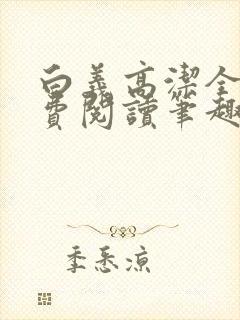 白義高潔全
費閱讀筆趣
季悉涼